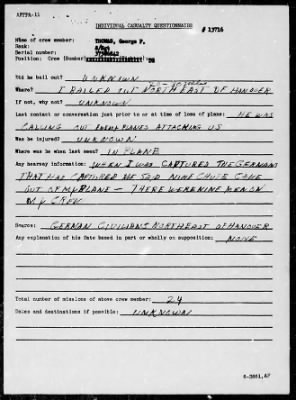 AFPPA-11
INDIVIDUAL CASUALTY QUESTIONNAIRE
# 13716
Name of crew member: THOMAS, George P.
Rank: S/Sgt
Serial number:
Position: Crew (Bomber)
Did he bail out? UNKNOWN
Where? I BAILED OUT NORTHEAST OF HANOVER
If not, why not? UNKNOWN
Last contact or conversation just prior to or at time of loss of plane: HE WAS
CALLING OUT ENEMY PLANES ATTACKING US
Was he injured? UNKNOWN
Where was he when last seen? IN PLANE
Any hearsay information: WHEN I WAS CAPTURED THE GERMANS
THAT HAD CAPTURED ME SAID NINE CHUTE CAME
OUT OF MY PLANE - THERE WERE NINE MEN ON
MY CREW
Source: GERMAN CIVILIANS NORTHEAST OF HANOVER
Any explanation of his fate based in part or wholly on supposition: NONE
Total number of missions of above crew member: 24
Dates and destinations if possible: UNKNOWN
6-3861,AF